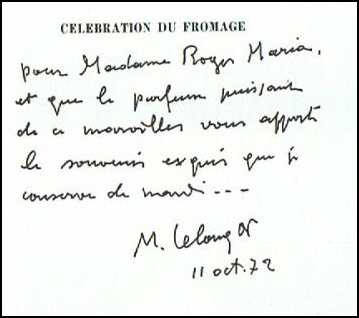 CELEBRATION DU FROMAGE
pour Madame Roger Maria,
et que le parfum puissant
de ces merveilles vous apporte
le souvenir exquis que je
conserve de mardi ---
M. Lelong
11 oct. 72